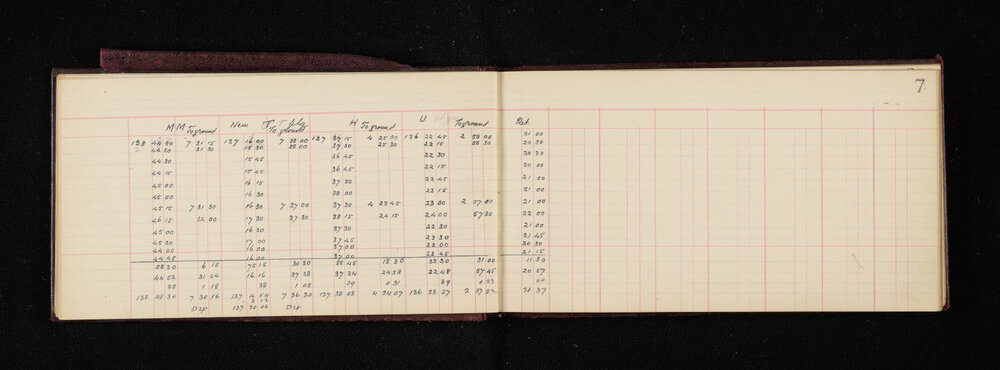 7
MM To ground New To ground H To ground U To ground Pat.
138 46 30 7 31 15 137 16 00 7 38 00 137 37 15 4 25 00 136 22 45 2 58 00 21 00
44 30 31 30 15 30 38 00 37 30 25 30 22 15 58 30 20 30
44 30 15 45 36 45 22 30 20 30
44 15 15 45 36 45 22 15 20 00
45 00 16 15 37 30 22 45 21 00
45 00 16 30 38 00 23 15 21 00
45 15 7 31 30 16 30 7 37 00 37 30 4 23 45 23 00 2 57 00 21 00
46 15 32 00 17 30 37 30 38 15 24 15 24 00 57 30 22 00
45 00 16 30 37 30 22 30 21 00
45 30 17 00 37 45 22 30 21 45
44 00 16 00 37 00 22 00 20 30
44 45 16 00 37 00 22 45 21 15
58 30 6 15 75 15 30 30 88 45 18 30 33 30 51 00 11 30
44 52 31 34 16 16 37 38 37 24 24 38 22 48 57 45 20 57
38 1 18 38 1 08 39 0 31 39 0 23 40
138 45 30 7 30 16 137 16 54 7 36 30 137 38 03 4 24 07 136 23 27 2 57 22 21 37
Dip 137 20 06 Dip